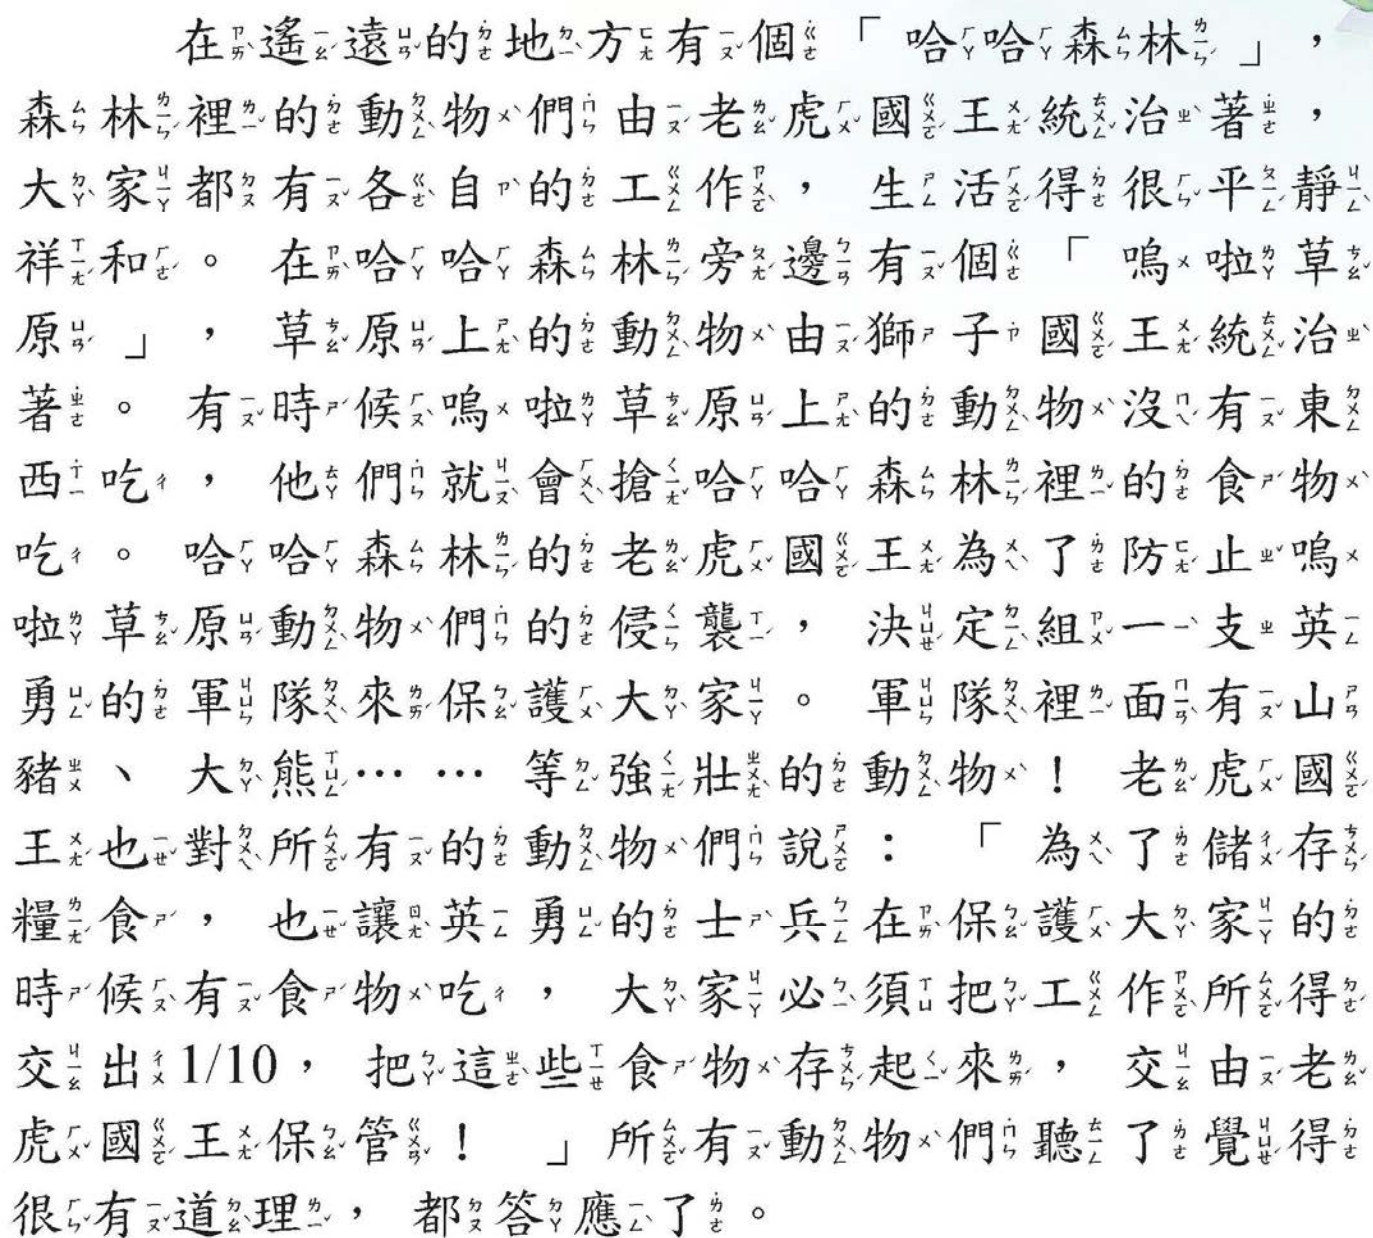 在遙遠的地方有個「哈哈森林」，
森林裡的動物們由老虎國王統治著，
大家都有各自的工作，生活得很平靜
祥和。在哈哈森林旁邊有個「嗚啦草
原」，草原上的動物由獅子國王統治
著。有時候嗚啦草原上的動物沒有東
西吃，他們就會搶哈哈森林裡的食物
吃。哈哈森林的老虎國王為了防止嗚
啦草原動物們的侵襲，決定組一支英
勇的軍隊來保護大家。軍隊裡面有山
豬、大熊……等強壯的動物！老虎國
王也對所有的動物們說：「為了儲存
糧食，也讓英勇的士兵在保護大家的
時候有食物吃，大家必須把工作所得
交出1/10，把這些食物存起來，交由老
虎國王保管！」所有動物們聽了覺得
很有道理，都答應了。